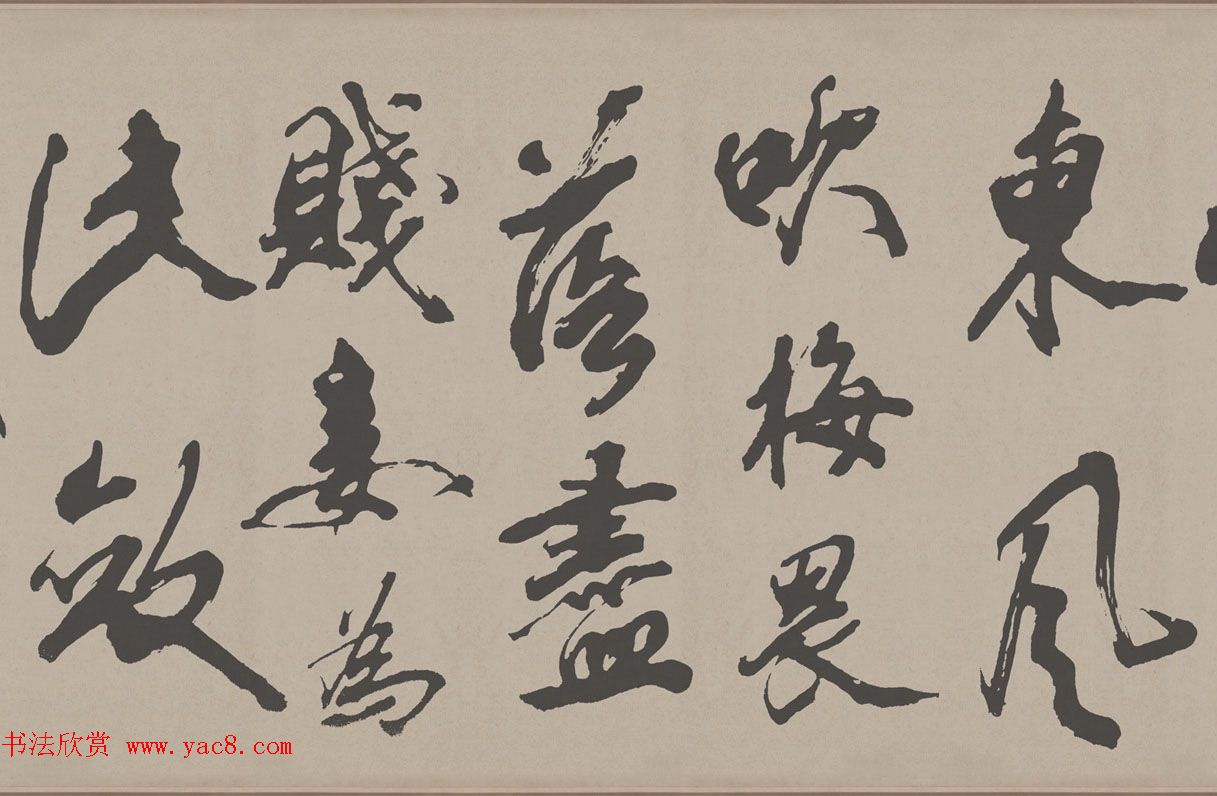 東風
吹梅畏
落盡
賤妾為
此斂
书法欣赏 www.yac8.com